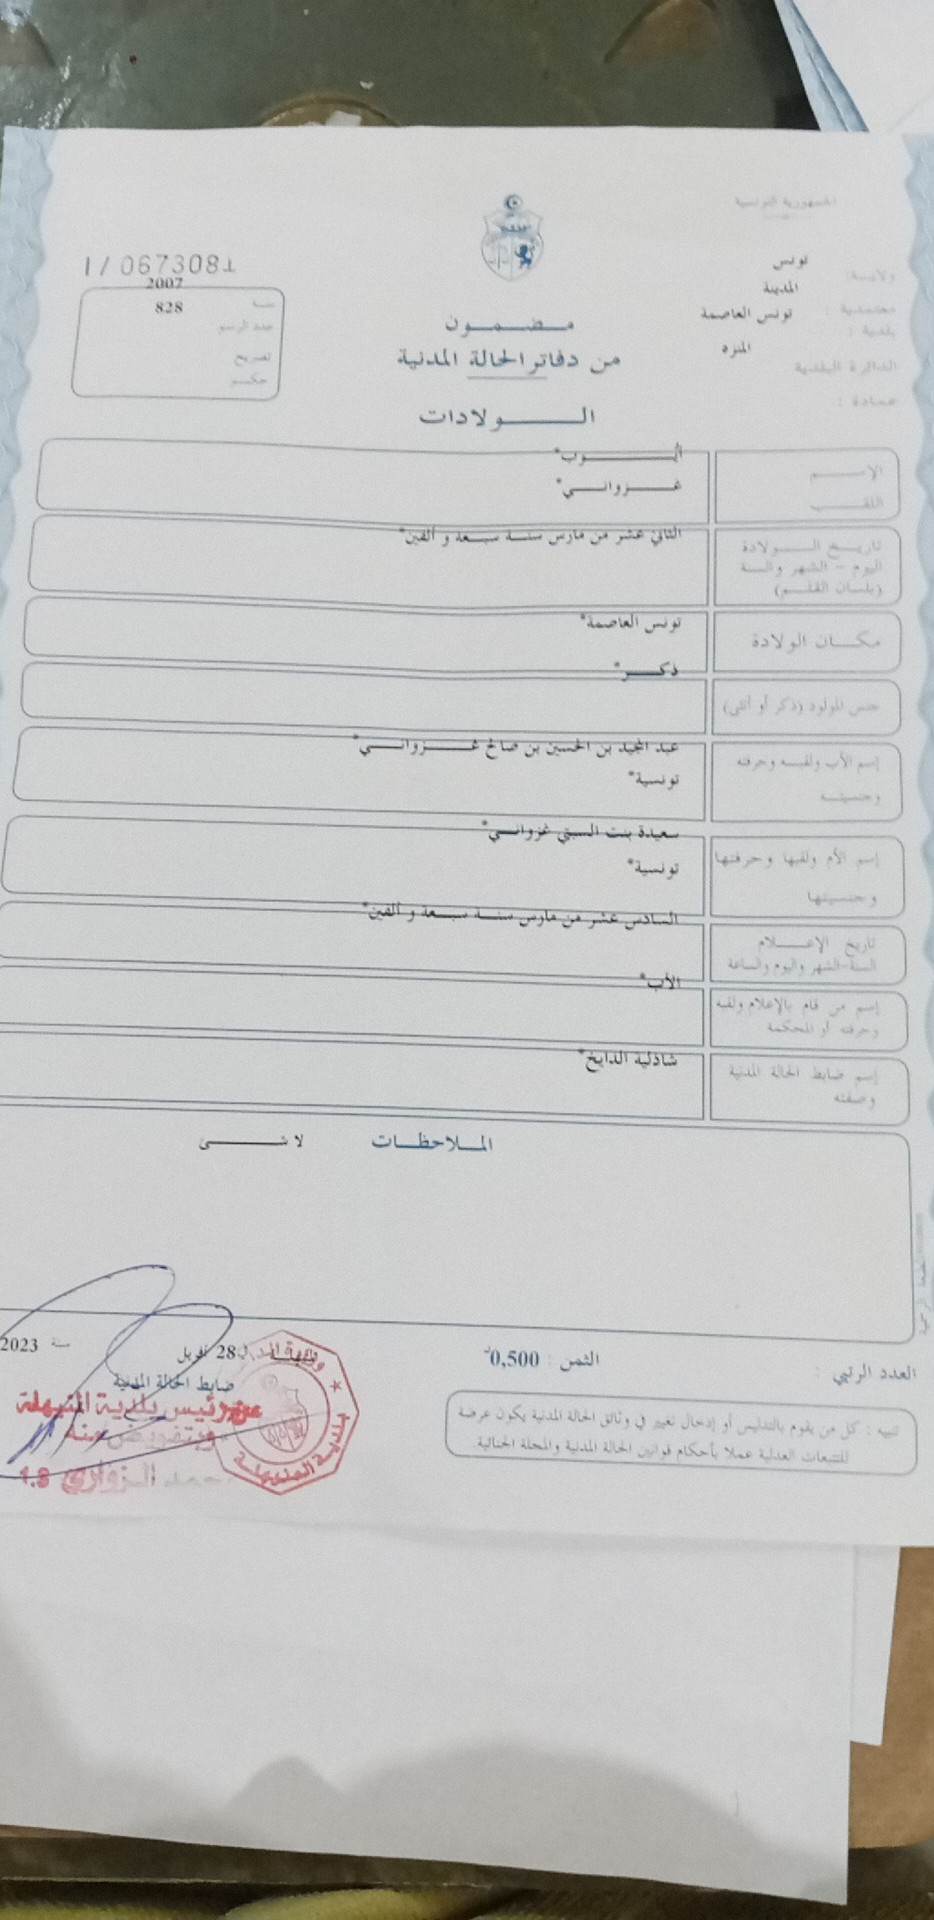 الجمهورية التونسية
ولايــة: تونس
معتمدية : المدينة
بلدية : تونس العاصمة
الدائرة البلدية المنزه
عمادة :
I / 067308T
سنة 2007
عدد الرسم 828
تصريح
حكم
مضمون
من دفاتر الحالة المدنية
الــولادات
الإســم
اللقــب غــزوانــي*
تاريــخ الــولادة الثاني عشر من مارس سنة سبعة و ألفين*
اليوم - الشهر والسنة
(بلسان القلــم)
مكــان الولادة تونس العاصمة*
جنس المولود (ذكر أو أنثى) ذكــر*
إسم الأب ولقبــه وحرفته عبد المجيد بن الحسين بن صالح غــزوانــي*
وجنسيتــه تونسية*
إسم الأم ولقبها وحرفتها سعيدة بنت السبتي غزوانــي*
وجنسيتها تونسية*
تاريخ الإعــلام السادس عشر من مارس سنة سبعة و ألفين*
السنة-الشهر واليوم والساعة
إسم من قام بالإعلام ولقبه الأب*
وحرفته أو المحكمة
إسم ضابط الحالة المدنية شاذلية الدايخ*
وصفته
الملاحظــات لا شــئ
العدد الرتبي :
الثمن : 0,500د
في 28 أفريل سنة 2023
ضابط الحالة المدنية
عن رئيس بلدية المنيهلة
وبتفويض منه
الــزواري
بلدية المنيهلة
تنبيه : كل من يقوم بالتدليس أو إدخال تغيير في وثائق الحالة المدنية يكون عرضة
للتتبعات العدلية عملا بأحكام قوانين الحالة المدنية والمجلة الجنائية.